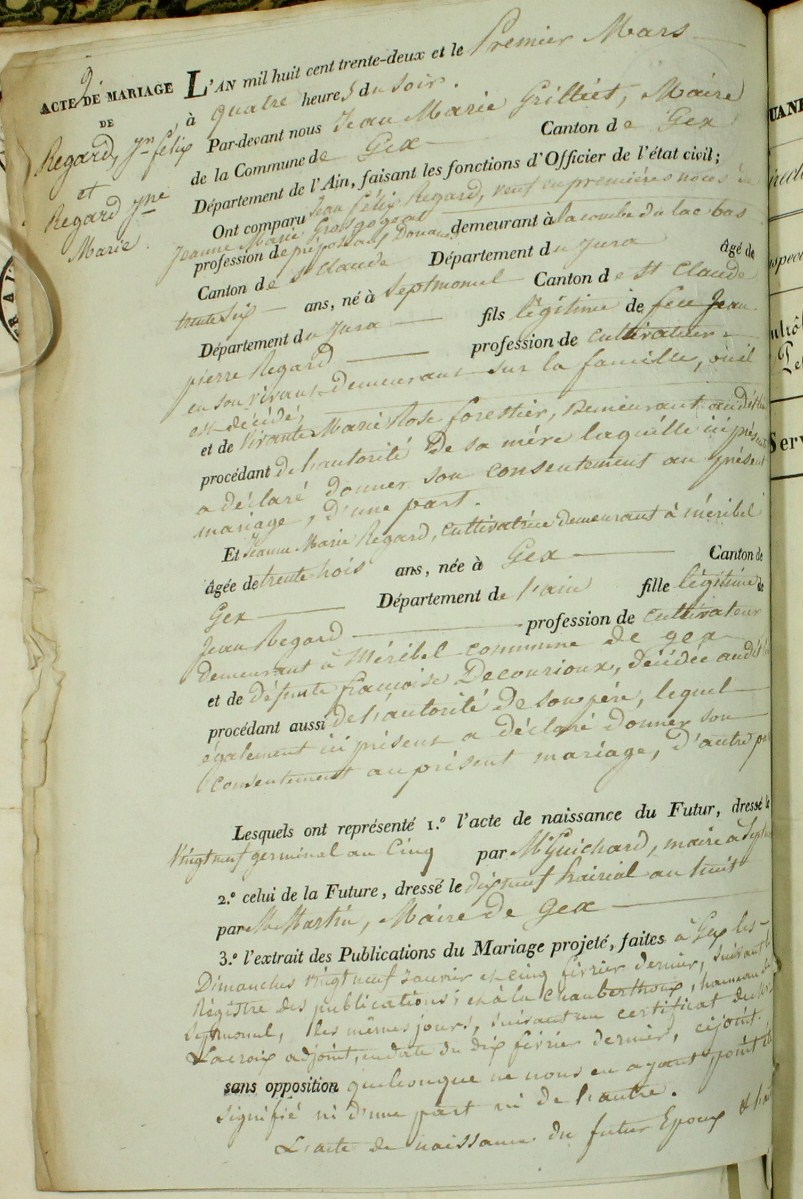 2
ACTE DE MARIAGE
DE
Regard, Jn félix
et
Regard Jne
Marie.
L'AN mil huit cent trente-deux et le Premier Mars
à quatre heures du soir.
Par-devant nous Jean Marie Grilliet, Maire
de la Commune de Gex Canton de Gex
Département de l'Ain, faisant les fonctions d'Officier de l'état civil;
Ont comparu Jean félix Regard, veuf en premières noces de
Jeanne Marie Grosgogeat
profession de préposé aux Douanes demeurant à la combe du lac bas
Canton de St Claude Département du Jura âgé de
trente six ans, né à Septmoncel Canton de St Claude
Département du Jura fils légitime de feu Jean
pierre Regard profession de Cultivateur
en son vivant demeurant sur la famille, où il
est décédé,
et de vivante Marie Rose forestier, demeurant audit lieu
procédant de l'autorité de sa mère laquelle ici présente
a déclaré donner son consentement au présent
mariage, d'une part.
Et Jeanne Marie Regard, Cultivatrice demeurant à méribel
âgée de trente trois ans, née à Gex Canton de
Gex Département de l'ain fille légitime de
Jean Regard profession de Cultivateur
demeurant à Méribel commune de gex
et de défunte françoise Decourioux, décédée audit lieu
procédant aussi de l'autorité de son père, lequel
également ici présent a déclaré donner son
consentement au présent mariage, d'autre part
Lesquels ont représenté 1.º l'acte de naissance du Futur, dressé le
vingt neuf germinal an Cinq par Mr Guichard, maire à
2.º celui de la Future, dressé le dix neuf prairial an huit
par Mr Martin, Maire de Gex
3.º l'extrait des Publications du Mariage projeté, faites à Gex les
Dimanches vingt neuf Janvier et cinq février dernier, suivant le
Régistre des publications; et à la Chauberthoux, hameau de
Septmoncel, les mêmes jours, suivant un certificat du Sr
Lacroix adjoint, en date du dix février dernier, cijoint,
sans opposition quelconque ne nous en ayant point été
signifié ni d'une part ni de l'autre.
L'acte de naissance du futur Epoux &
UANE
Serv